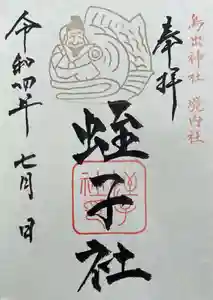 鳥出神社 境内社
奉拝
蛭子社
令和四年 七月 日